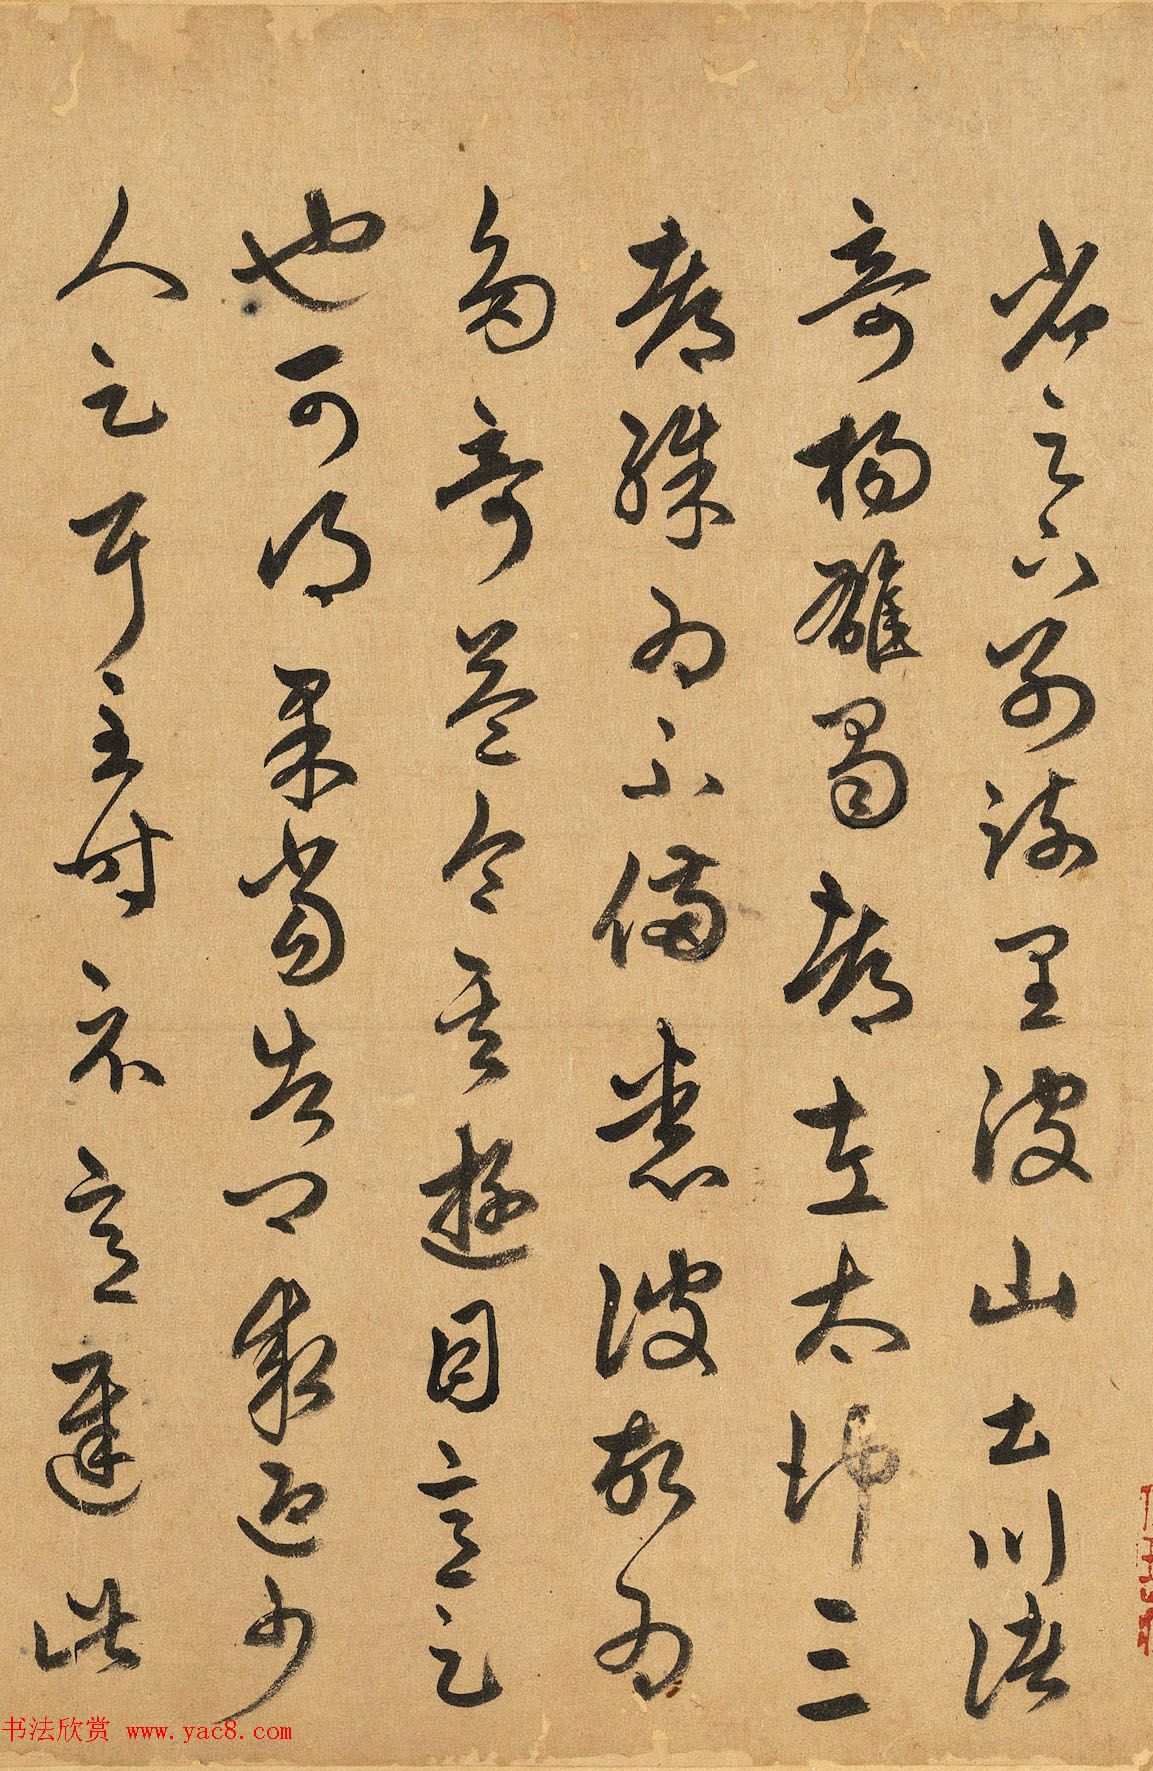 省足下别疏具彼山土川諸
奇揚雄蜀都左太冲三
都殊为不備悉彼故为
多奇益令其遊目意足
也可得果當告卿求迎少
人足耳至时示意遲此
书法欣赏 www.yac8.com